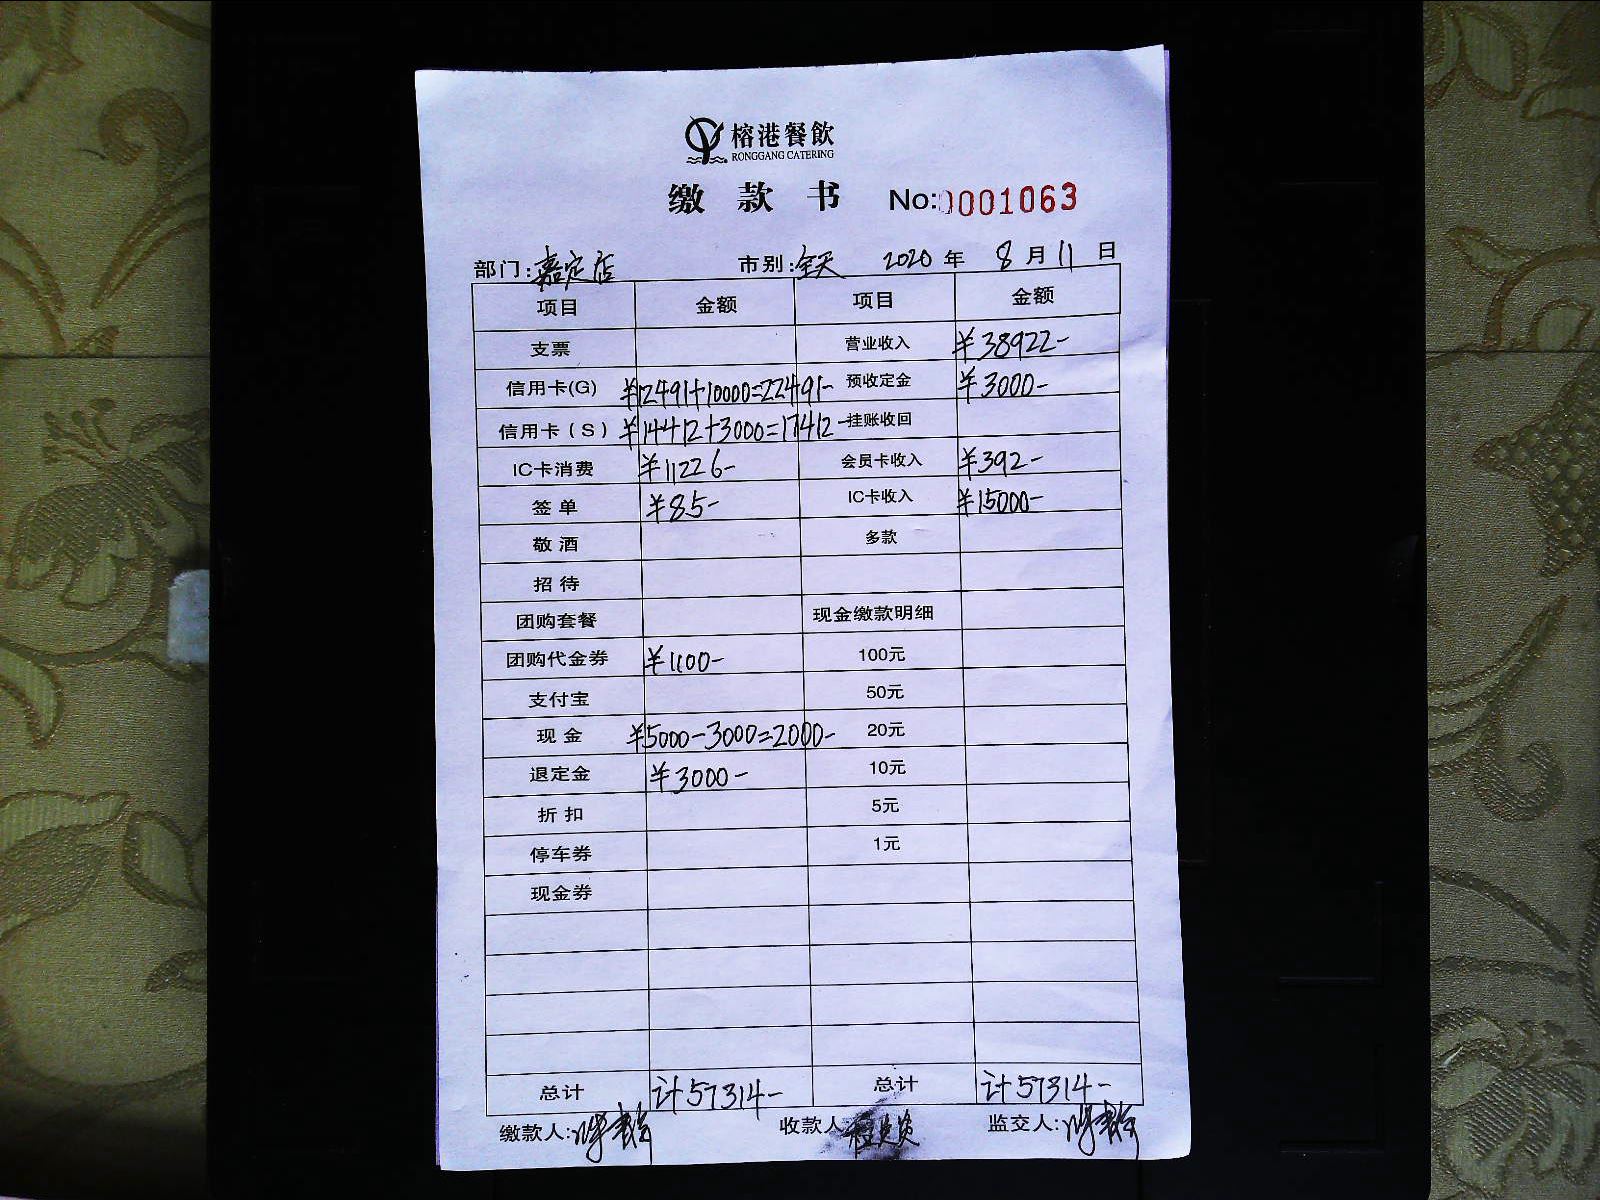 榕港餐飲
RONGGANG CATERING
缴款书 No:0001063
部门:嘉定店 市别:全天 2020年8月11日
项目 金额 项目 金额
支票 营业收入 ¥38922-
信用卡(G) ¥12491+10000=22491- 预收定金 ¥3000-
信用卡(S) ¥14412+3000=17412- 挂账收回
IC卡消费 ¥11226- 会员卡收入 ¥392-
签单 ¥85- IC卡收入 ¥15000-
敬酒 多款
招待
团购套餐 现金缴款明细
团购代金券 ¥1100- 100元
支付宝 50元
现金 ¥5000-3000=2000- 20元
退定金 ¥3000- 10元
折扣 5元
停车券 1元
现金券
总计 计57314- 总计 计57314-
缴款人: 收款人 监交人: